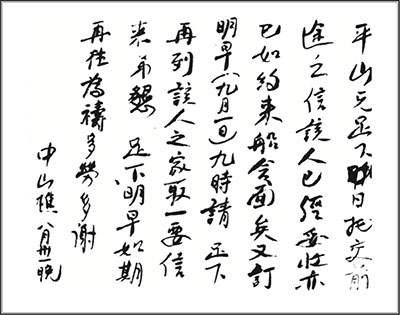 平山兄足下昨日托交前
途之信該人已經妥收亦
已如約來船會面矣又訂
明早(九月一日)九時請 足下
再到該人之家取一要信
來弟懇 足下明早如期
再往為禱多勞多謝
中山樵 八月卅一晚